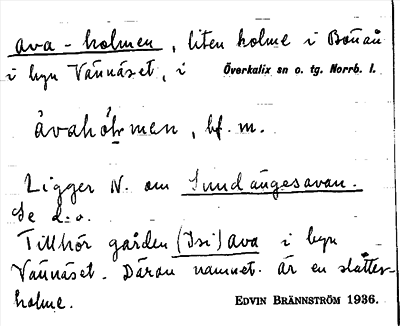 ava-holmen, liten holme i Bönån
i byn Vännäset, i Överkalix sn o. tg. Norrb. l.
åvahólmen, bf. m.
Ligger N. om Sundängesavan.
Se d.o.
Tillhör gården (Isi)ava i byn
Vännäset. Därav namnet. Är en slåtter-
holme.
EDVIN BRÄNNSTRÖM 1936.